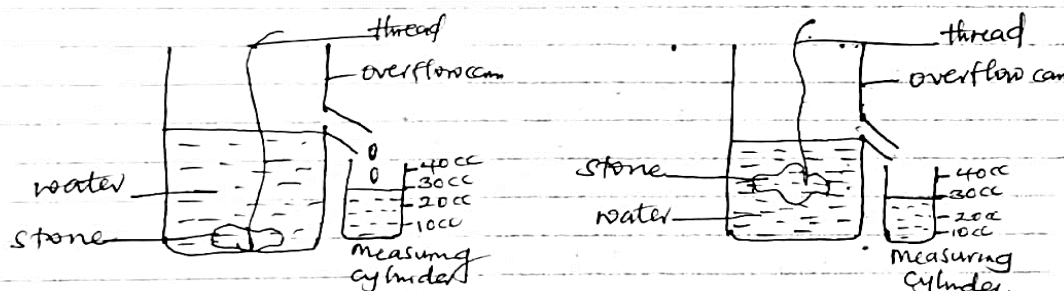 thread
overflow can
water
stone
40cc
30cc
20cc
10cc
measuring
cylinder
thread
overflow can
stone
water
40cc
30cc
20cc
10cc
measuring
cylinder